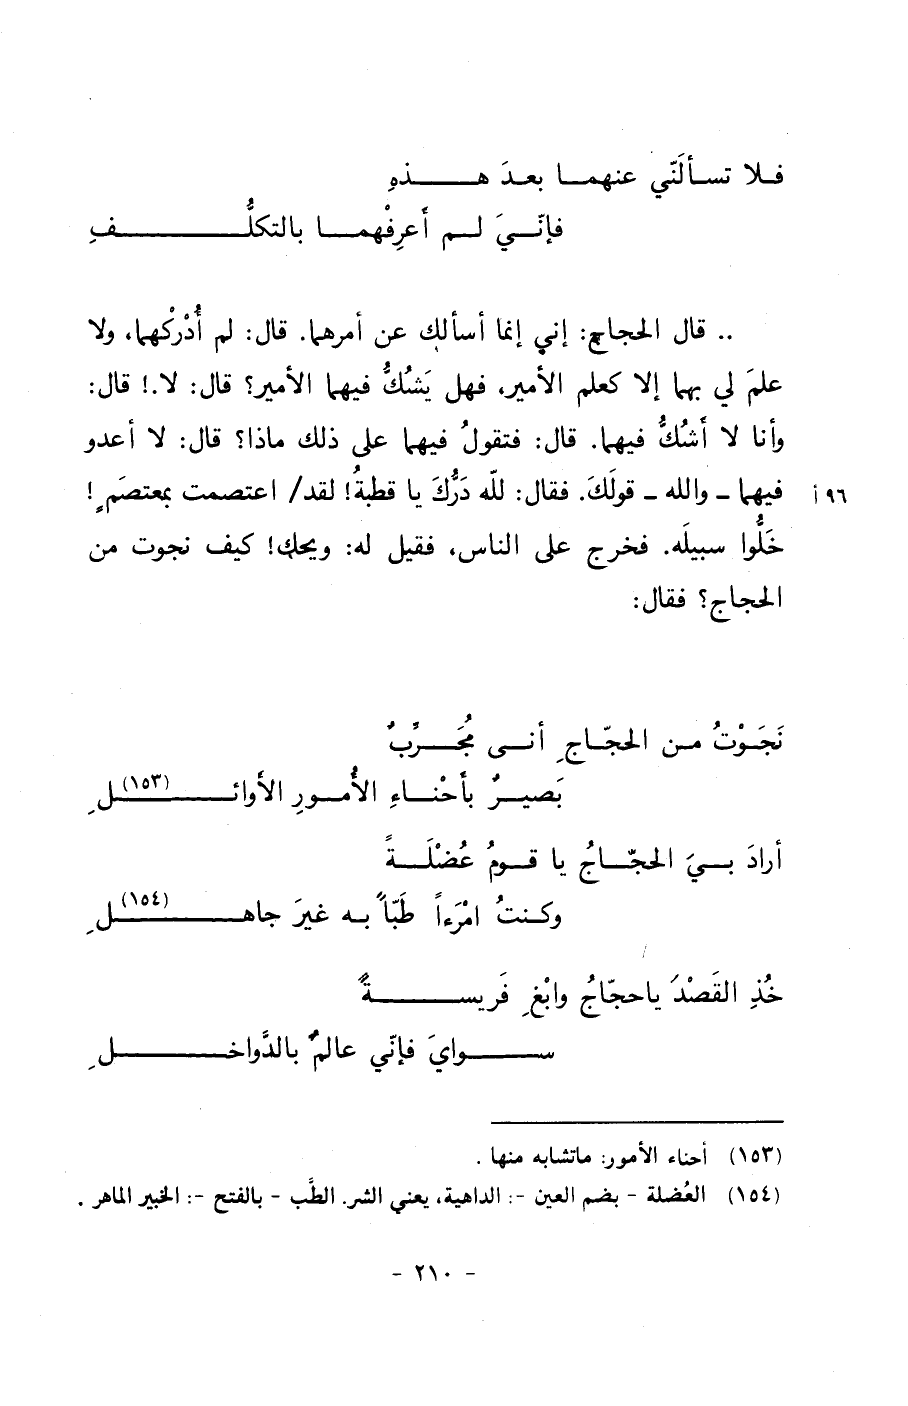 فلا تسألَنّي عنهما بعدَ هذهِ
فإنّيَ لم أَعرِفْهما بالتكلُّفِ
.. قال الحجاج: إني إنما أسألك عن أمرهما. قال: لم أُدْركْهما، ولا
علمَ لي بهما إلا كعلم الأمير، فهل يَشكُّ فيهما الأمير؟ قال: لا.! قال:
وأنا لا أشكُّ فيهما. قال: فتقولُ فيهما على ذلك ماذا؟ قال: لا أعدو
فيهما ـ والله ـ قولَكَ. فقال: للّه دَرُّكَ يا قطبةُ! لقد/ اعتصمت بمعتصَمٍ! ٩٦ أ
خَلُّوا سبيلَه. فخرج على الناس، فقيل له: ويحك! كيف نجوت من
الحجاج؟ فقال:
نَجَوْتُ من الحجّاجِ أنى مُجَرِّبٌ
بَصيرٌ بأحْناءِ الأُمورِ الأوائلِ (١٥٣)
أرادَ بيَ الحجّاجُ يا قومُ عُضْلَةً
وكنتُ امْرَءاً طَبّاً به غيرَ جاهلِ (١٥٤)
خُذِ القَصْدَ ياحجّاجُ وابْغِ فَريسةً
سوايَ فإنّي عالمٌ بالدَّواخلِ
(١٥٣) أحناء الأمور: ماتشابه منها .
(١٥٤) العُضلة - بضم العين -: الداهية، يعني الشر. الطَّب - بالفتح -: الخبير الماهر .
- ٢١٠ -